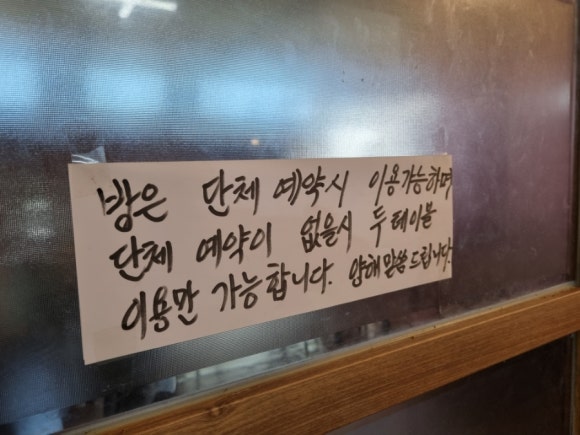 방은 단체 예약시 이용가능하며
단체 예약이 없을시 두 테이블
이용만 가능합니다. 양해말씀드립니다.